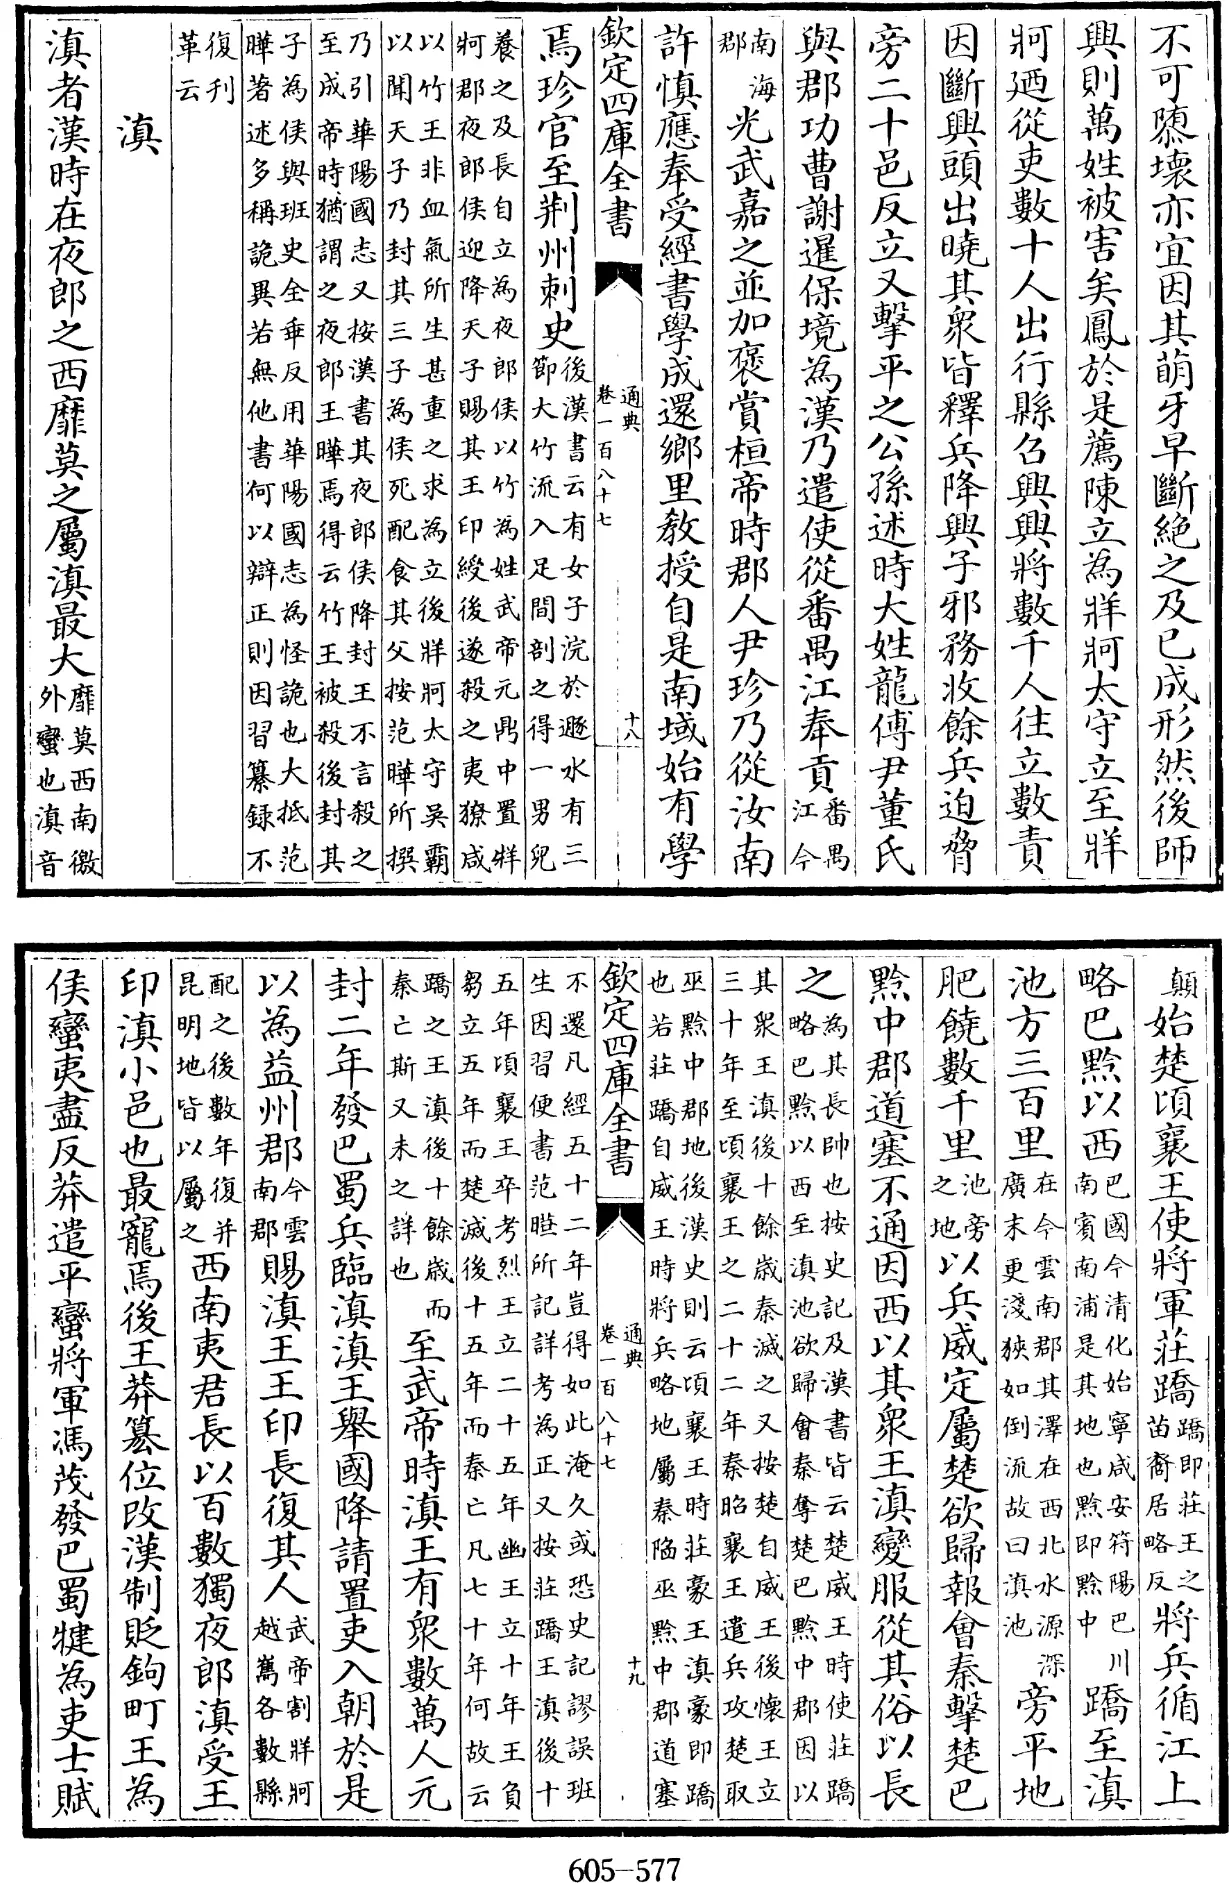 不可隳壞亦宜因其萌牙早斷絶之及已成形然後師
興則萬姓被害矣鳳於是薦陳立為牂牁太守立至牂
牁廼從吏數十人出行縣召興興將數千人往立數責
因斷興頭出曉其衆皆釋兵降興子邪務收餘兵迫脅
旁二十邑反立又擊平之公孫述時大姓龍傅尹董氏
與郡功曹謝暹保境為漢乃遣使從番禺江奉貢番禺江今
南海郡光武嘉之並加褒賞桓帝時郡人尹珍乃從汝南
許慎應奉受經書學成還鄉里教授自是南域始有學
欽定四庫全書
通典
卷一百八十七
十八
焉珍官至荆州刺史後漢書云有女子浣於遯水有三
節大竹流入足間剖之得一男兒
養之及長自立為夜郎侯以竹為姓武帝元鼎中置牂
牁郡夜郎侯迎降天子賜其王印綬後遂殺之夷獠咸
以竹王非血氣所生甚重之求為立後牂牁太守吳霸
以聞天子乃封其三子為侯死配食其父按范曄所撰
乃引華陽國志又按漢書其夜郎侯降封王不言殺之
至成帝時猶謂之夜郎王曄焉得云竹王被殺後封其
子為侯與班史全乖反用華陽國志為怪詭也大抵范
曄著述多稱詭異若無他書何以辯正則因習纂録不
復刊
革云
滇
滇者漢時在夜郎之西靡莫之屬滇最大靡莫西南徼
外蠻也滇音
顛始楚頃襄王使將軍莊蹻蹻即莊王之苗裔居略反將兵循江上
略巴黔以西巴國今清化始寧咸安符陽巴川南賓南浦是其地也黔即黔中蹻至滇
池方三百里在今雲南郡其澤在西北水源深廣末更淺狹如倒流故曰滇池旁平地
肥饒數千里池旁之地以兵威定屬楚欲歸報會秦擊楚巴
黔中郡道塞不通因西以其衆王滇變服從其俗以長
之為其長帥也按史記及漢書皆云楚威王時使莊蹻
略巴黔以西至滇池欲歸會秦奪楚巴黔中郡因以
其衆王滇後十餘歲秦滅之又按楚自威王後懷王立
三十年至頃襄王之二十二年秦昭襄王遣兵攻楚取
巫黔中郡地後漢史則云頃襄王時莊豪王滇豪即蹻
也若莊蹻自威王時將兵略地屬秦陷巫黔中郡道塞
欽定四庫全書
通典
卷一百八十七
十九
不還凡經五十二年豈得如此淹久或恐史記謬誤班
生因習便書范曄所記詳考為正又按莊蹻王滇後十
五年頃襄王卒考烈王立二十五年幽王立十年王負
芻立五年而楚滅後十五年而秦亡凡七十年何故云
蹻之王滇後十餘歲而秦亡斯又未之詳也至武帝時滇王有衆數萬人元
封二年發巴蜀兵臨滇滇王舉國降請置吏入朝於是
以為益州郡今雲南郡賜滇王王印長復其人武帝割牂牁越嶲各數縣
配之後數年復并昆明地皆以屬之西南夷君長以百數獨夜郎滇受王
印滇小邑也最寵焉後王莽簒位改漢制貶鉤町王為
侯蠻夷盡反莽遣平蠻將軍馮茂發巴蜀犍為吏士賦
605-577